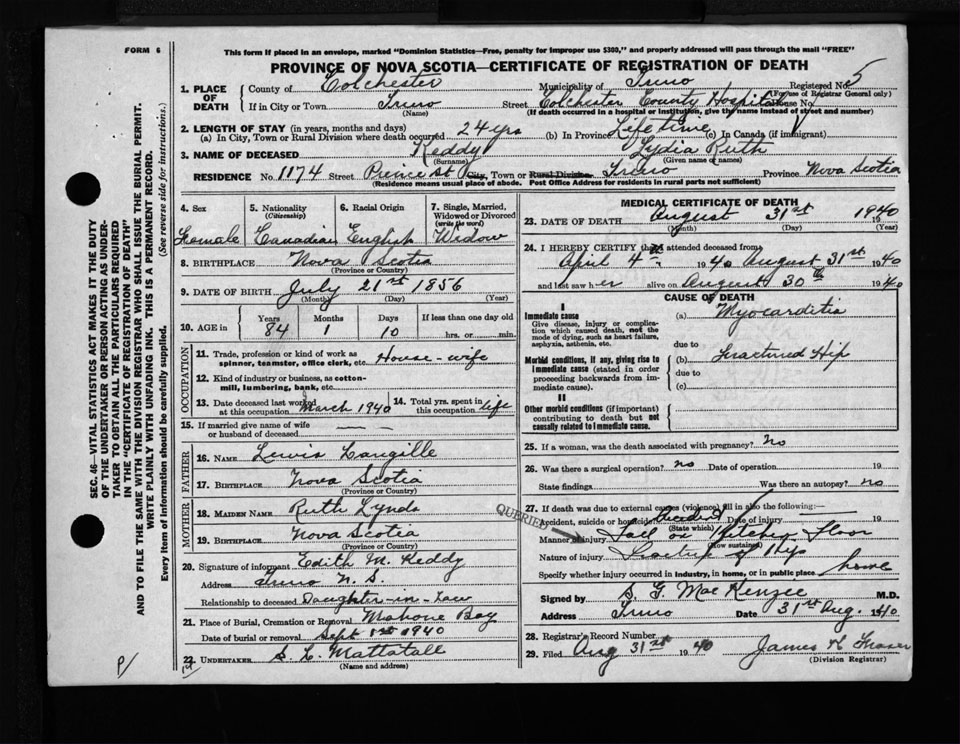 FORM 6
This form if placed in an envelope, marked "Dominion Statistics—Free, penalty for improper use $300," and properly addressed will pass through the mail "FREE"
PROVINCE OF NOVA SCOTIA—CERTIFICATE OF REGISTRATION OF DEATH
1. PLACE OF DEATH County of Colchester Municipality of Truro Registered No. 5
(For use of Registrar General only)
If in City or Town Truro Street Colchester County Hospital House No.
(Name) (If death occurred in a hospital or institution, give the name instead of street and number)
2. LENGTH OF STAY (in years, months and days)
(a) In City, Town or Rural Division where death occurred 24 yrs (b) In Province Life time (c) In Canada (if immigrant)
3. NAME OF DECEASED Reddy Lydia Ruth
(Surname) (Given name or names)
RESIDENCE No. 1174 Street Prince St City, Town or Rural Division Truro Province Nova Scotia
(Residence means usual place of abode. Post Office Address for residents in rural parts not sufficient)
4. Sex 5. Nationality (Citizenship) 6. Racial Origin 7. Single, Married, Widowed or Divorced (write the word)
Female Canadian English Widow
8. BIRTHPLACE Nova Scotia
(Province or Country)
9. DATE OF BIRTH July 21st 1856
(Month) (Day) (Year)
10. AGE in Years Months Days If less than one day old
84 1 10 hrs. or min.
OCCUPATION
11. Trade, profession or kind of work as spinner, teamster, office clerk, etc. House-wife
12. Kind of industry or business, as cotton-mill, lumbering, bank, etc.
13. Date deceased last worked at this occupation March 1940 14. Total yrs. spent in this occupation life
15. If married give name of wife or husband of deceased
FATHER
16. NAME Lewis Langille
17. BIRTHPLACE Nova Scotia
(Province or Country)
MOTHER
18. MAIDEN NAME Ruth Lynds
19. BIRTHPLACE Nova Scotia
(Province or Country)
20. Signature of informant Edith M. Reddy
Address Truro N. S.
Relationship to deceased Daughter-in-Law
21. Place of Burial, Cremation or Removal Mahone Bay
Date of burial or removal Sept 1st 1940
22. UNDERTAKER S. L. Mattatall
MEDICAL CERTIFICATE OF DEATH
23. DATE OF DEATH August 31st 1940
(Month) (Day) (Year)
24. I HEREBY CERTIFY that I attended deceased from
April 4th 1940 August 31st 1940
and last saw her alive on August 30th 1940
CAUSE OF DEATH
I
Immediate cause
Give disease, injury or complication which caused death, not the mode of dying, such as heart failure, asphyxia, asthenia, etc.
(a) Myocarditis
due to
Morbid conditions, if any, giving rise to immediate cause (stated in order proceeding backwards from immediate cause).
(b) Fractured Hip
due to
(c)
II
Other morbid conditions (if important) contributing to death but not causally related to immediate cause.
25. If a woman, was the death associated with pregnancy? no
26. Was there a surgical operation? no Date of operation 19
State findings Was there an autopsy? no
27. If death was due to external causes (violence) fill in also the following:—
Accident, suicide or homicide Accident Date of injury 19
(State which)
QUERIED
Manner of injury Fall on Kitchen Floor
(How sustained)
Nature of injury of Hip
Specify whether injury occurred in industry, in home, or in public place home
Signed by S. G. MacKenzie M.D.
Address Truro Date 31st Aug. 1940
28. Registrar's Record Number
29. Filed Aug 31st 1940 James Fraser
(Division Registrar)
SEC. 46—VITAL STATISTICS ACT MAKES IT THE DUTY OF THE UNDERTAKER OR PERSON ACTING AS UNDERTAKER TO OBTAIN ALL THE PARTICULARS REQUIRED IN THE "CERTIFICATE OF REGISTRATION OF DEATH" AND TO FILE THE SAME WITH THE DIVISION REGISTRAR WHO SHALL ISSUE THE BURIAL PERMIT.
WRITE PLAINLY WITH UNFADING INK. THIS IS A PERMANENT RECORD.
Every item of information should be carefully supplied. (See reverse side for instructions.)